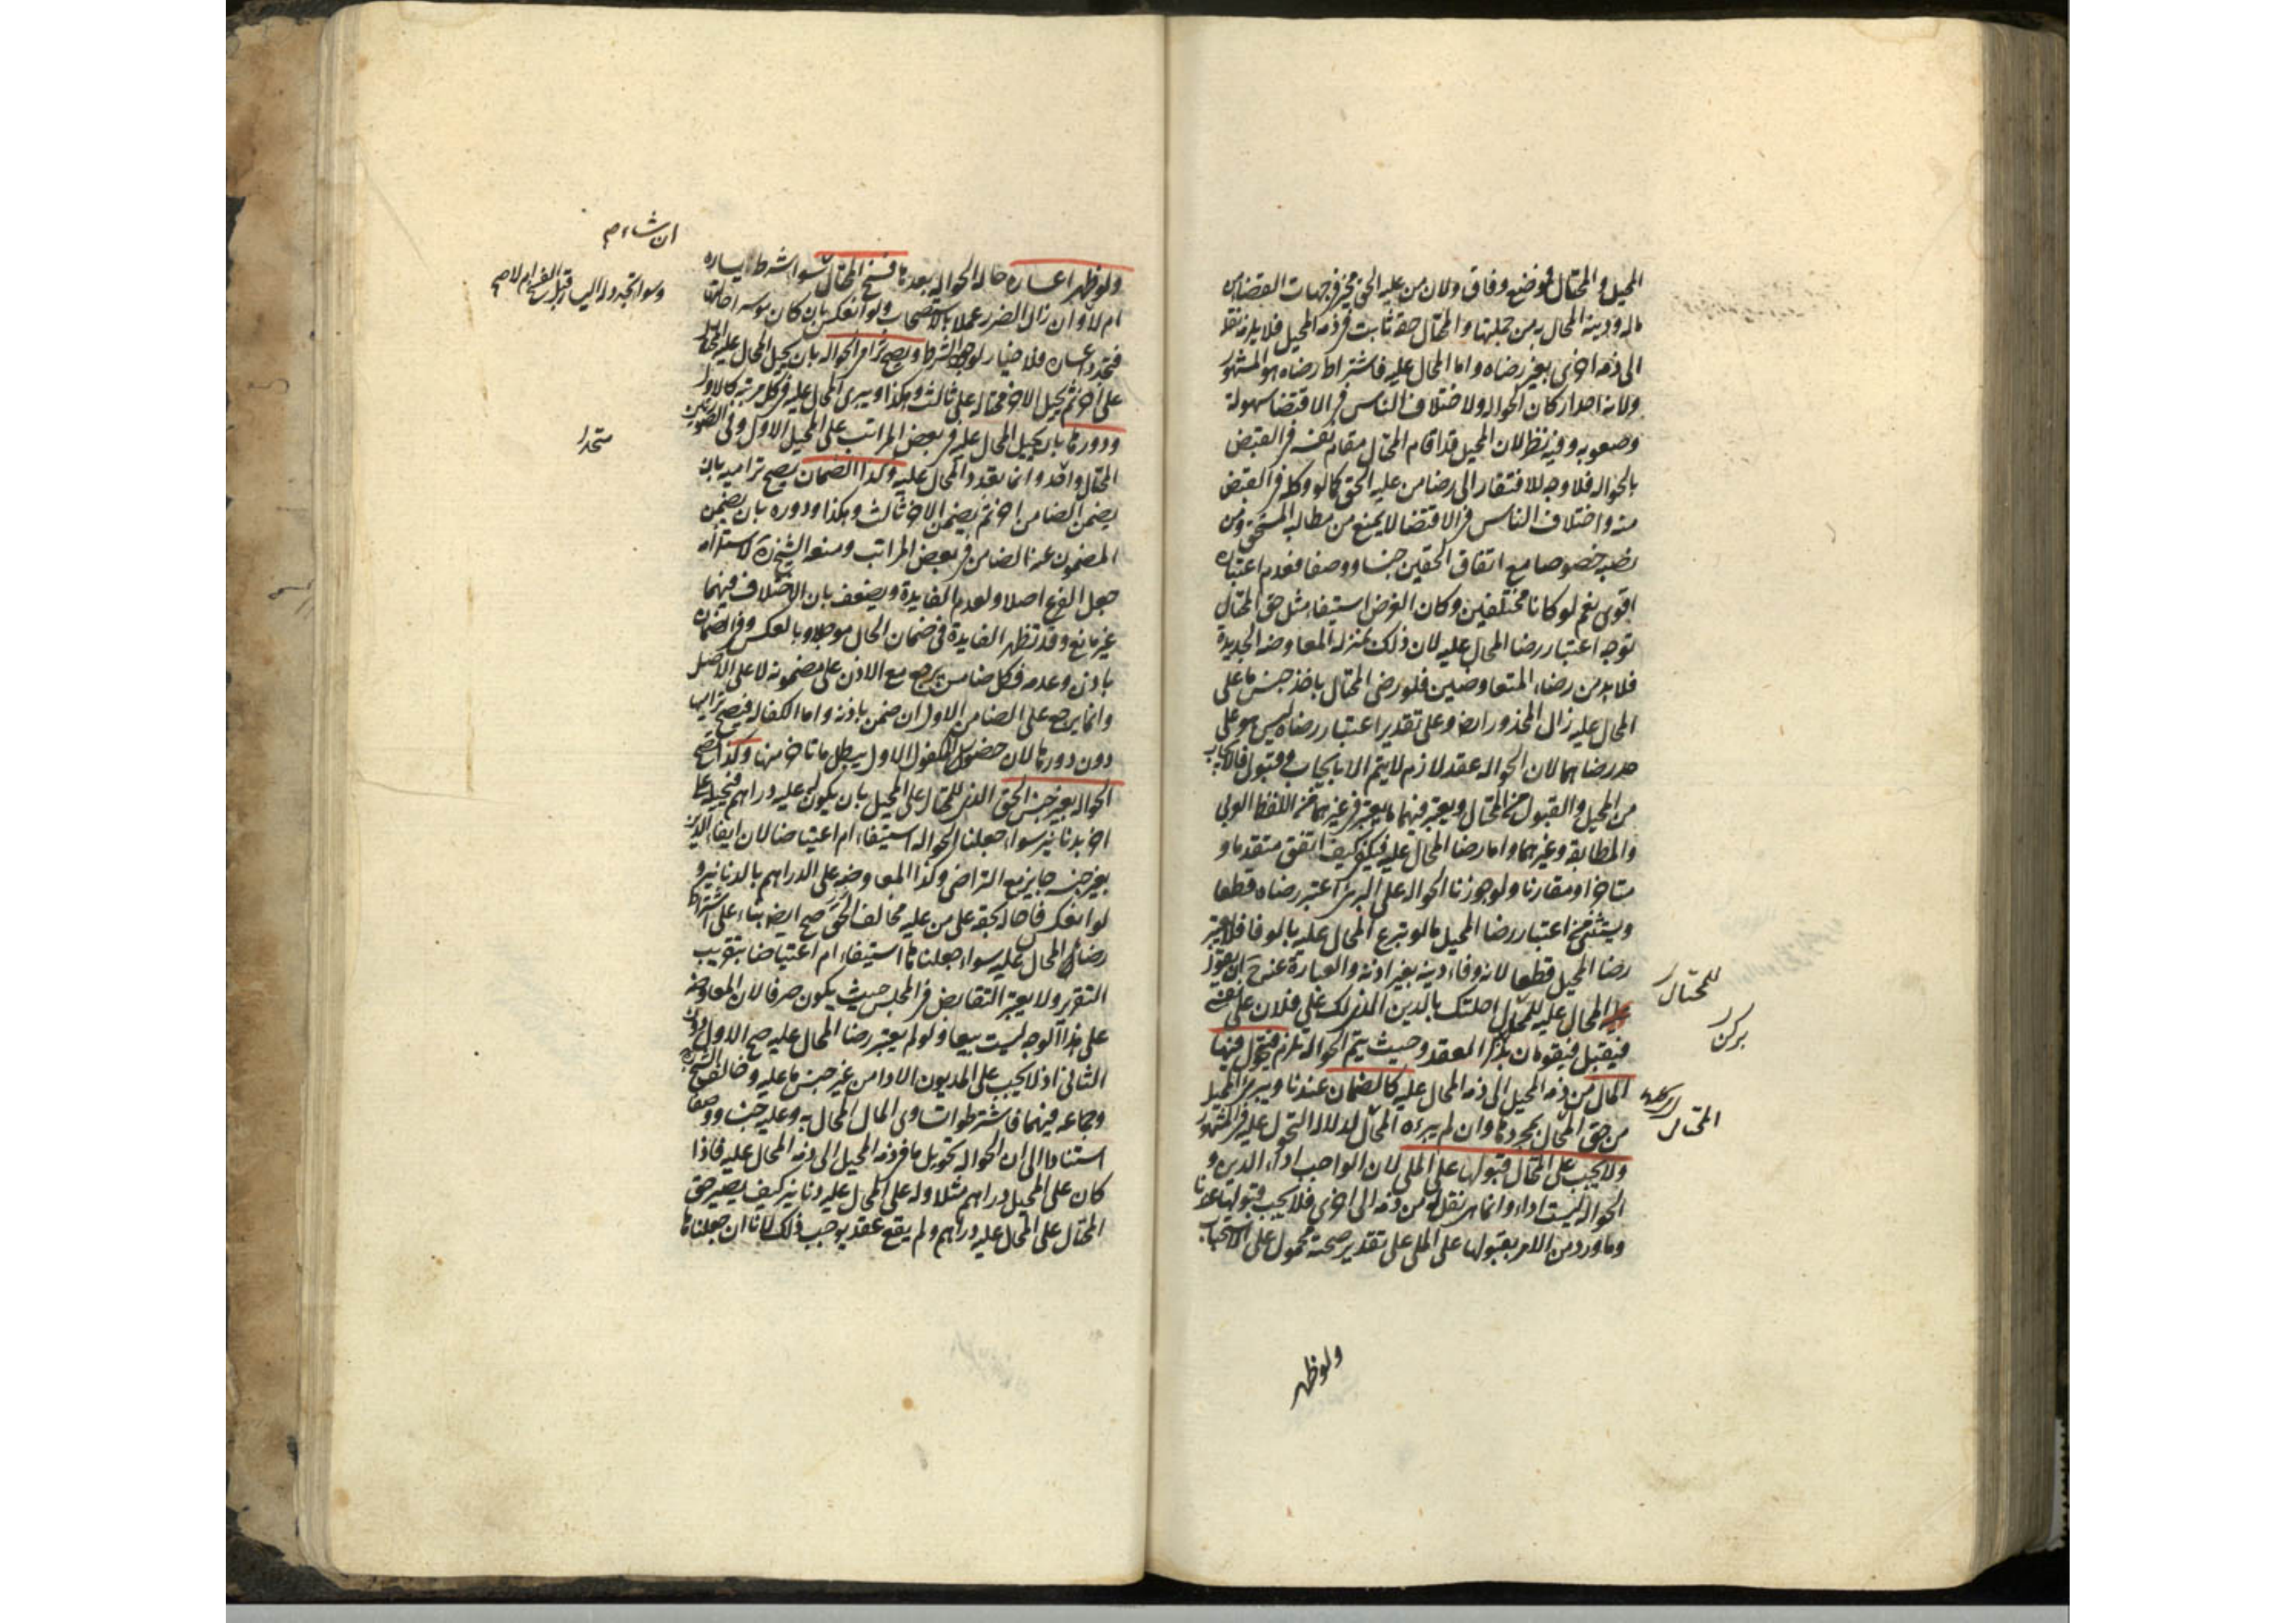 المحيل والمحتال فموضع وفاق ولان من عليه الحق مخير في جهات القضا من
ماله ودينه المحال به من جملتها والمحتال حقه ثابت في ذمة المحيل فلا يلزمه نقله
الى ذمة اخرى بغير رضاه واما المحال عليه فاشتراط رضاه هو المشهور
ولانه احد اركان الحوالة ولاختلاف الناس في الاقتضا سهولة
وصعوبه وفيه نظر لان المحيل قد اقام المحتال مقام نفسه في القبض
بالحوالة فلا وجه للافتقار الى رضا من عليه الحق كما لو وكله في القبض
منه واختلاف الناس في الاقتضا لا يمنع من مطالبه المستحق ومن
نصبه خصوصا مع اتفاق الحقين جنسا ووصفا فعدم اعتباره
اقوى نعم لو كانا مختلفين وكان الغرض استيفاء مثل حق المحتال
توجه اعتبار رضا المحال عليه لان ذلك بمنزلة المعاوضة الجديدة
فلابد من رضاء المتعاوضين فلو رضى المحتال باخذ جنس ما على
المحال عليه زال المحذور ايضا وعلى تقدير اعتبار رضاه ليس هو على
حد رضاهما لان الحوالة عقد لازم لا يتم الا بايجاب وقبول فالايجاب
من المحيل والقبول من المحتال ويعتبر فيهما ما يعتبر في غيرهما من اللفظ العربي
والمطابقة وغيرهما واما رضا المحال عليه فيكفي كيف اتفق متقدما و
متاخرا ومقارنا ولو جوزنا الحوالة على البرئ اعتبر رضاه قطعا
ويستثنى من اعتبار رضا المحيل ما لو تبرع المحال عليه بالوفا فلا يعتبر
رضا المحيل قطعا لانه وفاء دينه بغير اذنه والعبارة عنه ح ان يقول
المحال عليه للمحتال احلتك بالدين الذي لك على فلان على نفسي
فيقبل فيقومان بركن العقد وحيث يتم الحوالة تلزم فيتحول فيها
المال من ذمة المحيل الى ذمة المحال عليه كالضمان عندنا ويبرئ المحيل
من حق المحتال بمجردها وان لم يبرءه المحتال لدلالة التحول عليه في المشهور
ولا يجب على المحتال قبولها على الملي لان الواجب اداء الدين و
الحوالة ليست اداء وانما هي نقل له من ذمة الى اخرى فلا يجب قبولها عندنا
وما ورد من الامر بقبولها على الملي على تقدير صحته محمول على الاستحباب
للمحتال
بركن
المحتال
ولو ظهر
ولو ظهر اعساره حالة الحوالة بعدها فسخ المحتال سواء شرط يساره
ام لا وان زال الضرر عملا بالاستصحاب ولو انعكس بان كان موسرا حالتها
فتجدد اعساره فلا خيار لوجود الشرط ويصح ترامي الحوالة بان يحيل المحال عليه المحتال
على اخر ثم يحيل الاخر محتاله على ثالث وهكذا ويبرئ المحال عليه في كل مرتبة كالاول
ودورها بان يحيل المحال عليه في بعض المراتب على المحيل الاول وفي الصورتين
المحتال واحد وانما تعدد المحال عليه وكذا الضمان يصح تراميه بان
يضمن الضامن اخر ثم يضمن الاخر ثالث وهكذا ودوره بان يضمن
المضمون عنه الضامن في بعض المراتب ومنعه الشيخ ره لاستلزامه
جعل الفرع اصلا ولعدم الفايدة ويضعف بان الاختلاف فيهما
غير مانع وقد تظهر الفايدة في ضمان الحال موجلا وبالعكس وفي الضمان
باذن وعدمه فكل ضامن يرجع مع الاذن على مضمونه لا على الاصيل
وانما يرجع على الضامن الاول ان ضمن باذنه واما الكفالة فيصح تراميها
دون دورها لان حضور المكفول الاول يبطل ما تاخر منها وكذا تصح
الحوالة بغير جنس الحق الذي للمحتال على المحيل بان يكون له عليه دراهم فيحيله على
اخر بدنانير سواء جعلنا الحوالة استيفاء ام اعتياضا لان ايفاء الدين
بغير جنسه جايز مع التراضي وكذا المعاوضة على الدراهم بالدنانير و
لو انعكس فاحاله بحقه على من عليه مخالف الحق صح ايضا بناء على اشتراط
رضاء المحال عليه سواء جعلناها استيفاء ام اعتياضا بتقريب
التقرير ولا يعتبر التقابض في المجلس حيث يكون صرفا لان المعاوضة
على هذا الوجه ليست بيعا ولو لم يعتبر رضا المحال عليه صح الاول دون
الثاني اذ لا يجب على المديون الادا من غير جنس ما عليه وخالف الشيخ ره
وجماعه فيهما فاشترطوا تساوي المال المحال به وعليه جنسا ووصفا
استنادا الى ان الحوالة تحويل ما في ذمة المحيل الى ذمة المحال عليه فاذا
كان على المحيل دراهم مثلا وله على المحال عليه دنانير كيف يصير حق
المحتال على المحال عليه دراهم ولم يقع عقد يوجب ذلك لانا ان جعلناها
ان شاء صح
وسواء تجدد له اليسار قبل الفسخ ام لا صح
متحدا